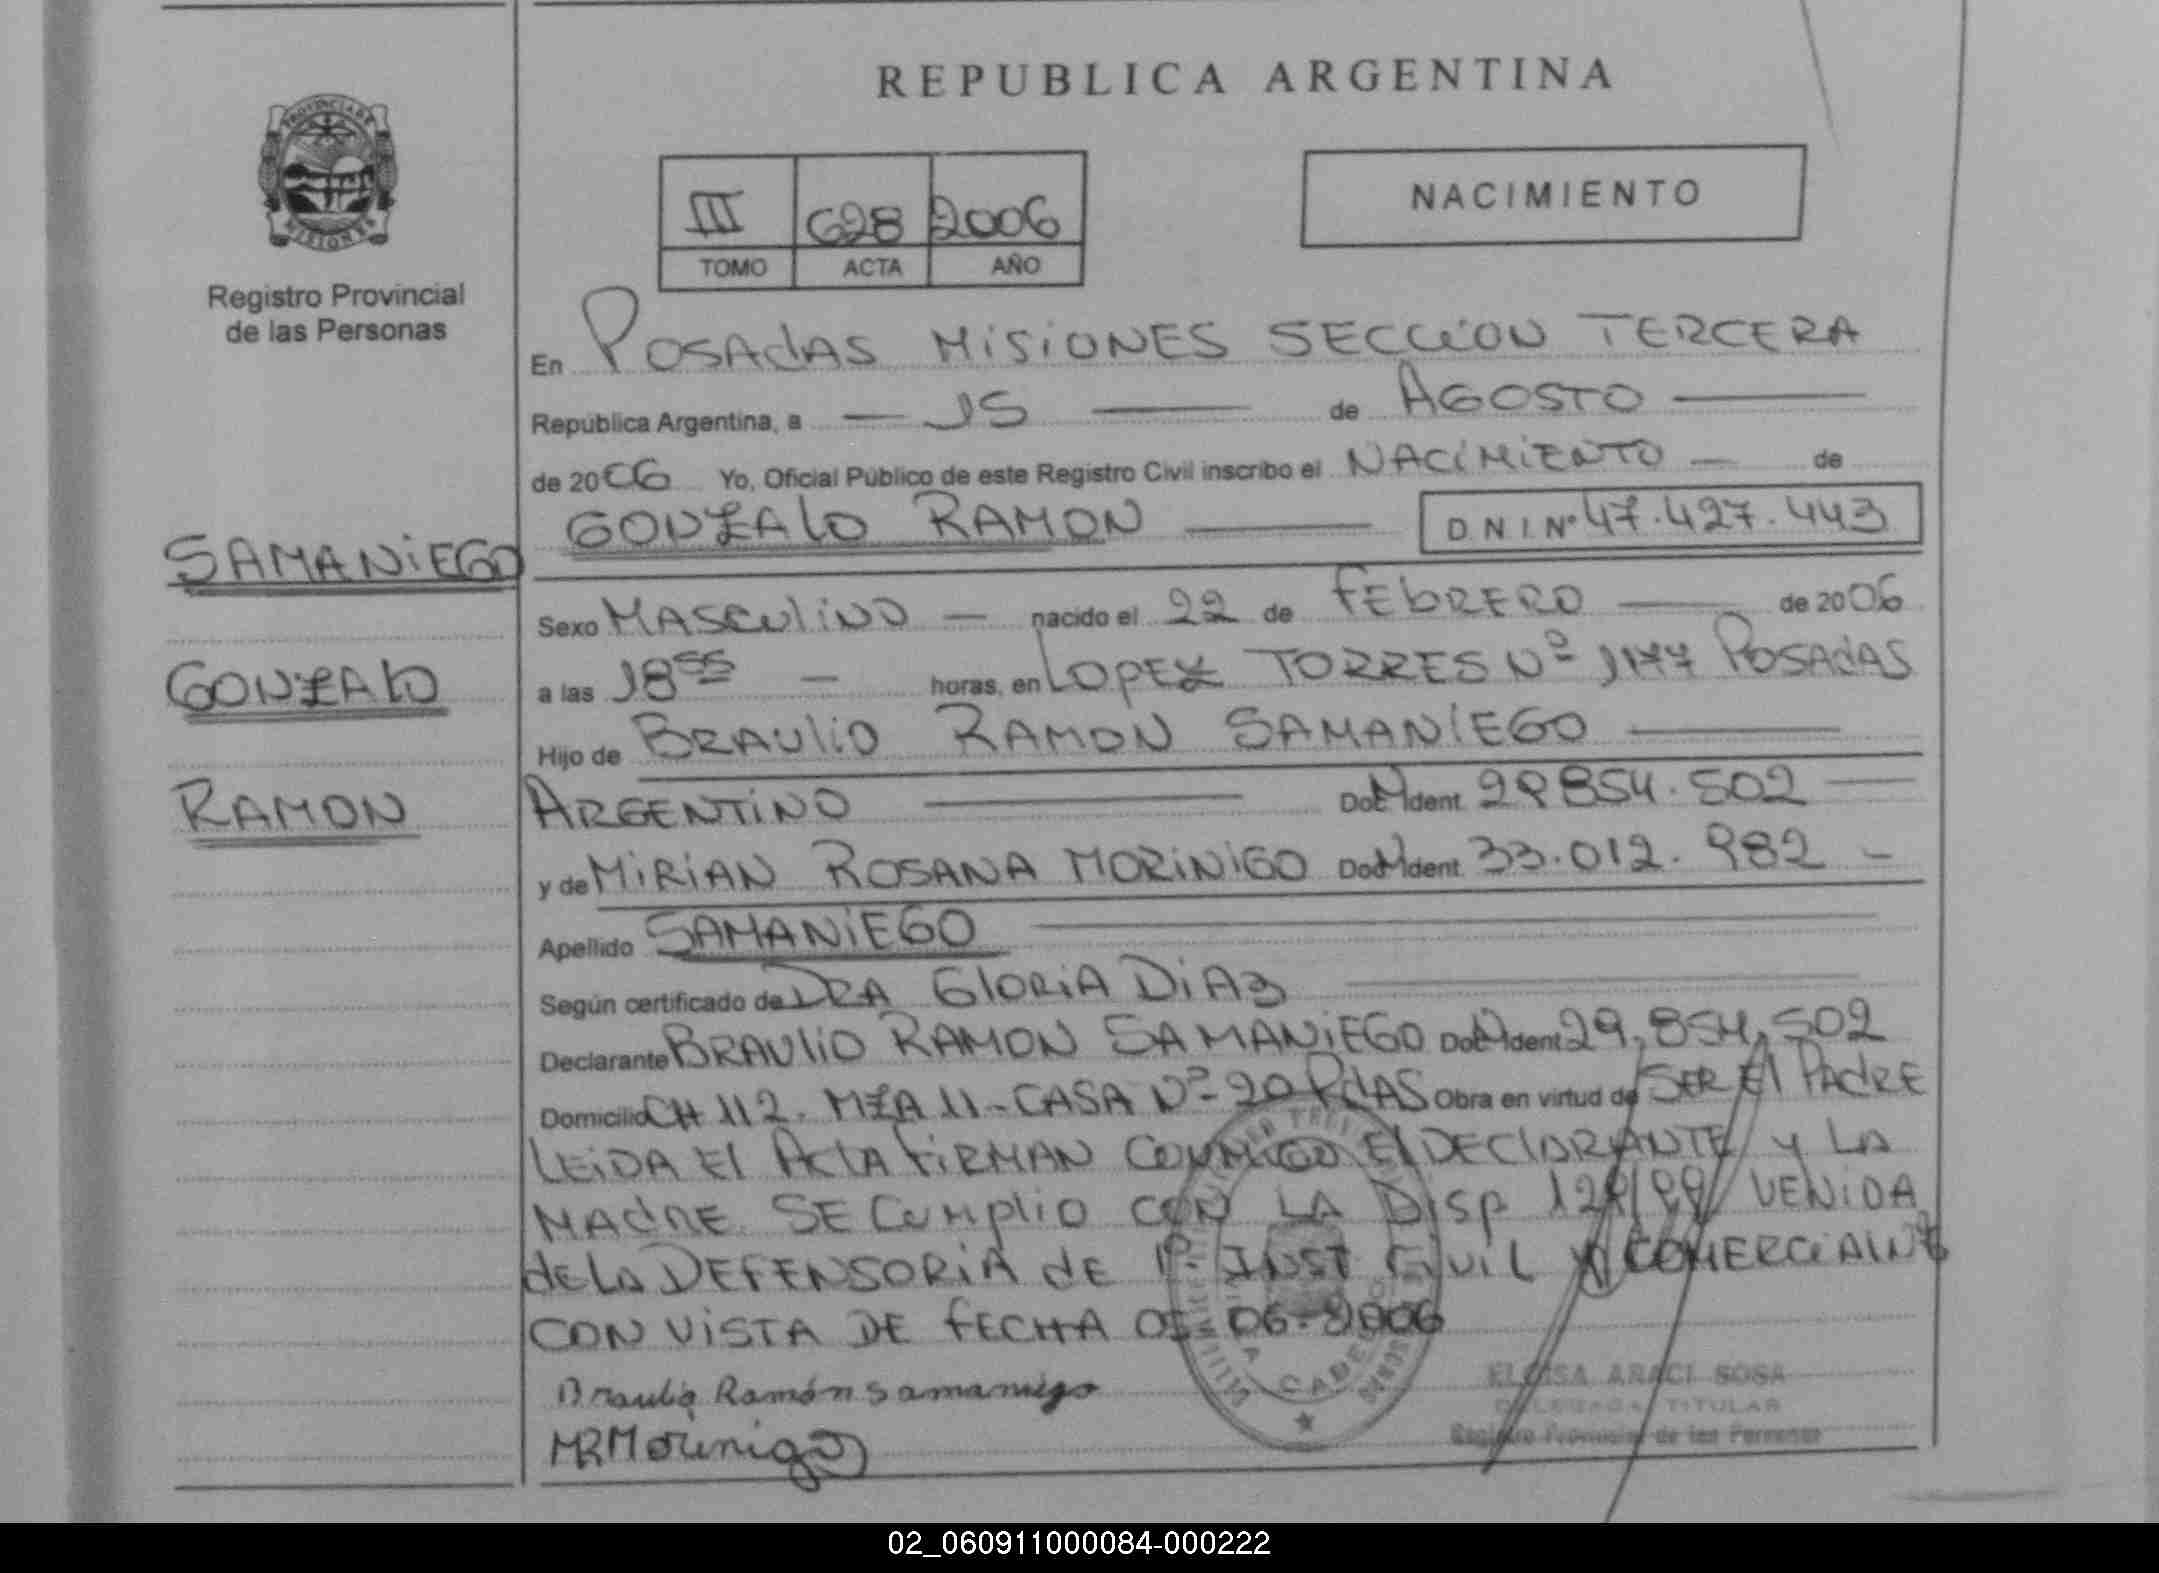 REPUBLICA ARGENTINA
PROVINCIA DE
MISIONES
Registro Provincial
de las Personas
III 628 2006
TOMO ACTA AÑO
NACIMIENTO
En POSAdAS MiSiONES SECCiON TERCERA
República Argentina, a — 15 — de AGOSTO —
de 2006 Yo, Oficial Público de este Registro Civil inscribo el NACiMiENTO — de
GONZAlO RAMON — D N I Nº 47.427.443
SAMANiEGO
GONZAlO
RAMON
Sexo MASCuliNO — nacido el 22 de FEbRERO — de 2006
a las 18 55 — horas, en LOPEZ TORRES Nº 1177 POSAdAS
Hijo de BRAUliO RAMON SAMANiEGO —
ARGENTiNO — Doc Ident. 29854.502 —
y de MiRiAN ROSANA MORiNiGO Doc Ident. 33.012.982 —
Apellido SAMANiEGO —
Según certificado de DRA GlORiA DiAz
Declarante BRAUliO RAMON SAMANiEGO Doc Ident 29,854,502
Domicilio CH 112. MZA 11 - CASA Nº 20 PdAS Obra en virtud de SER El PAdRE
LEiDA El ActA FiRMAN CONMiGO El DEClARANTE y LA
MAdRE. SE CumpliO CON LA Disp 129/99 VENiDA
dE LA DEFENSORiA dE 1º INST CiViL y COMERCiAl Nº
CON ViSTA DE FECHA 05-06-2006
Braulio Ramón Samaniego
MRMorinigo
ELOISA ARACI SOSA
DELEGADA TITULAR
Registro Provincial de las Personas
02_060911000084-000222